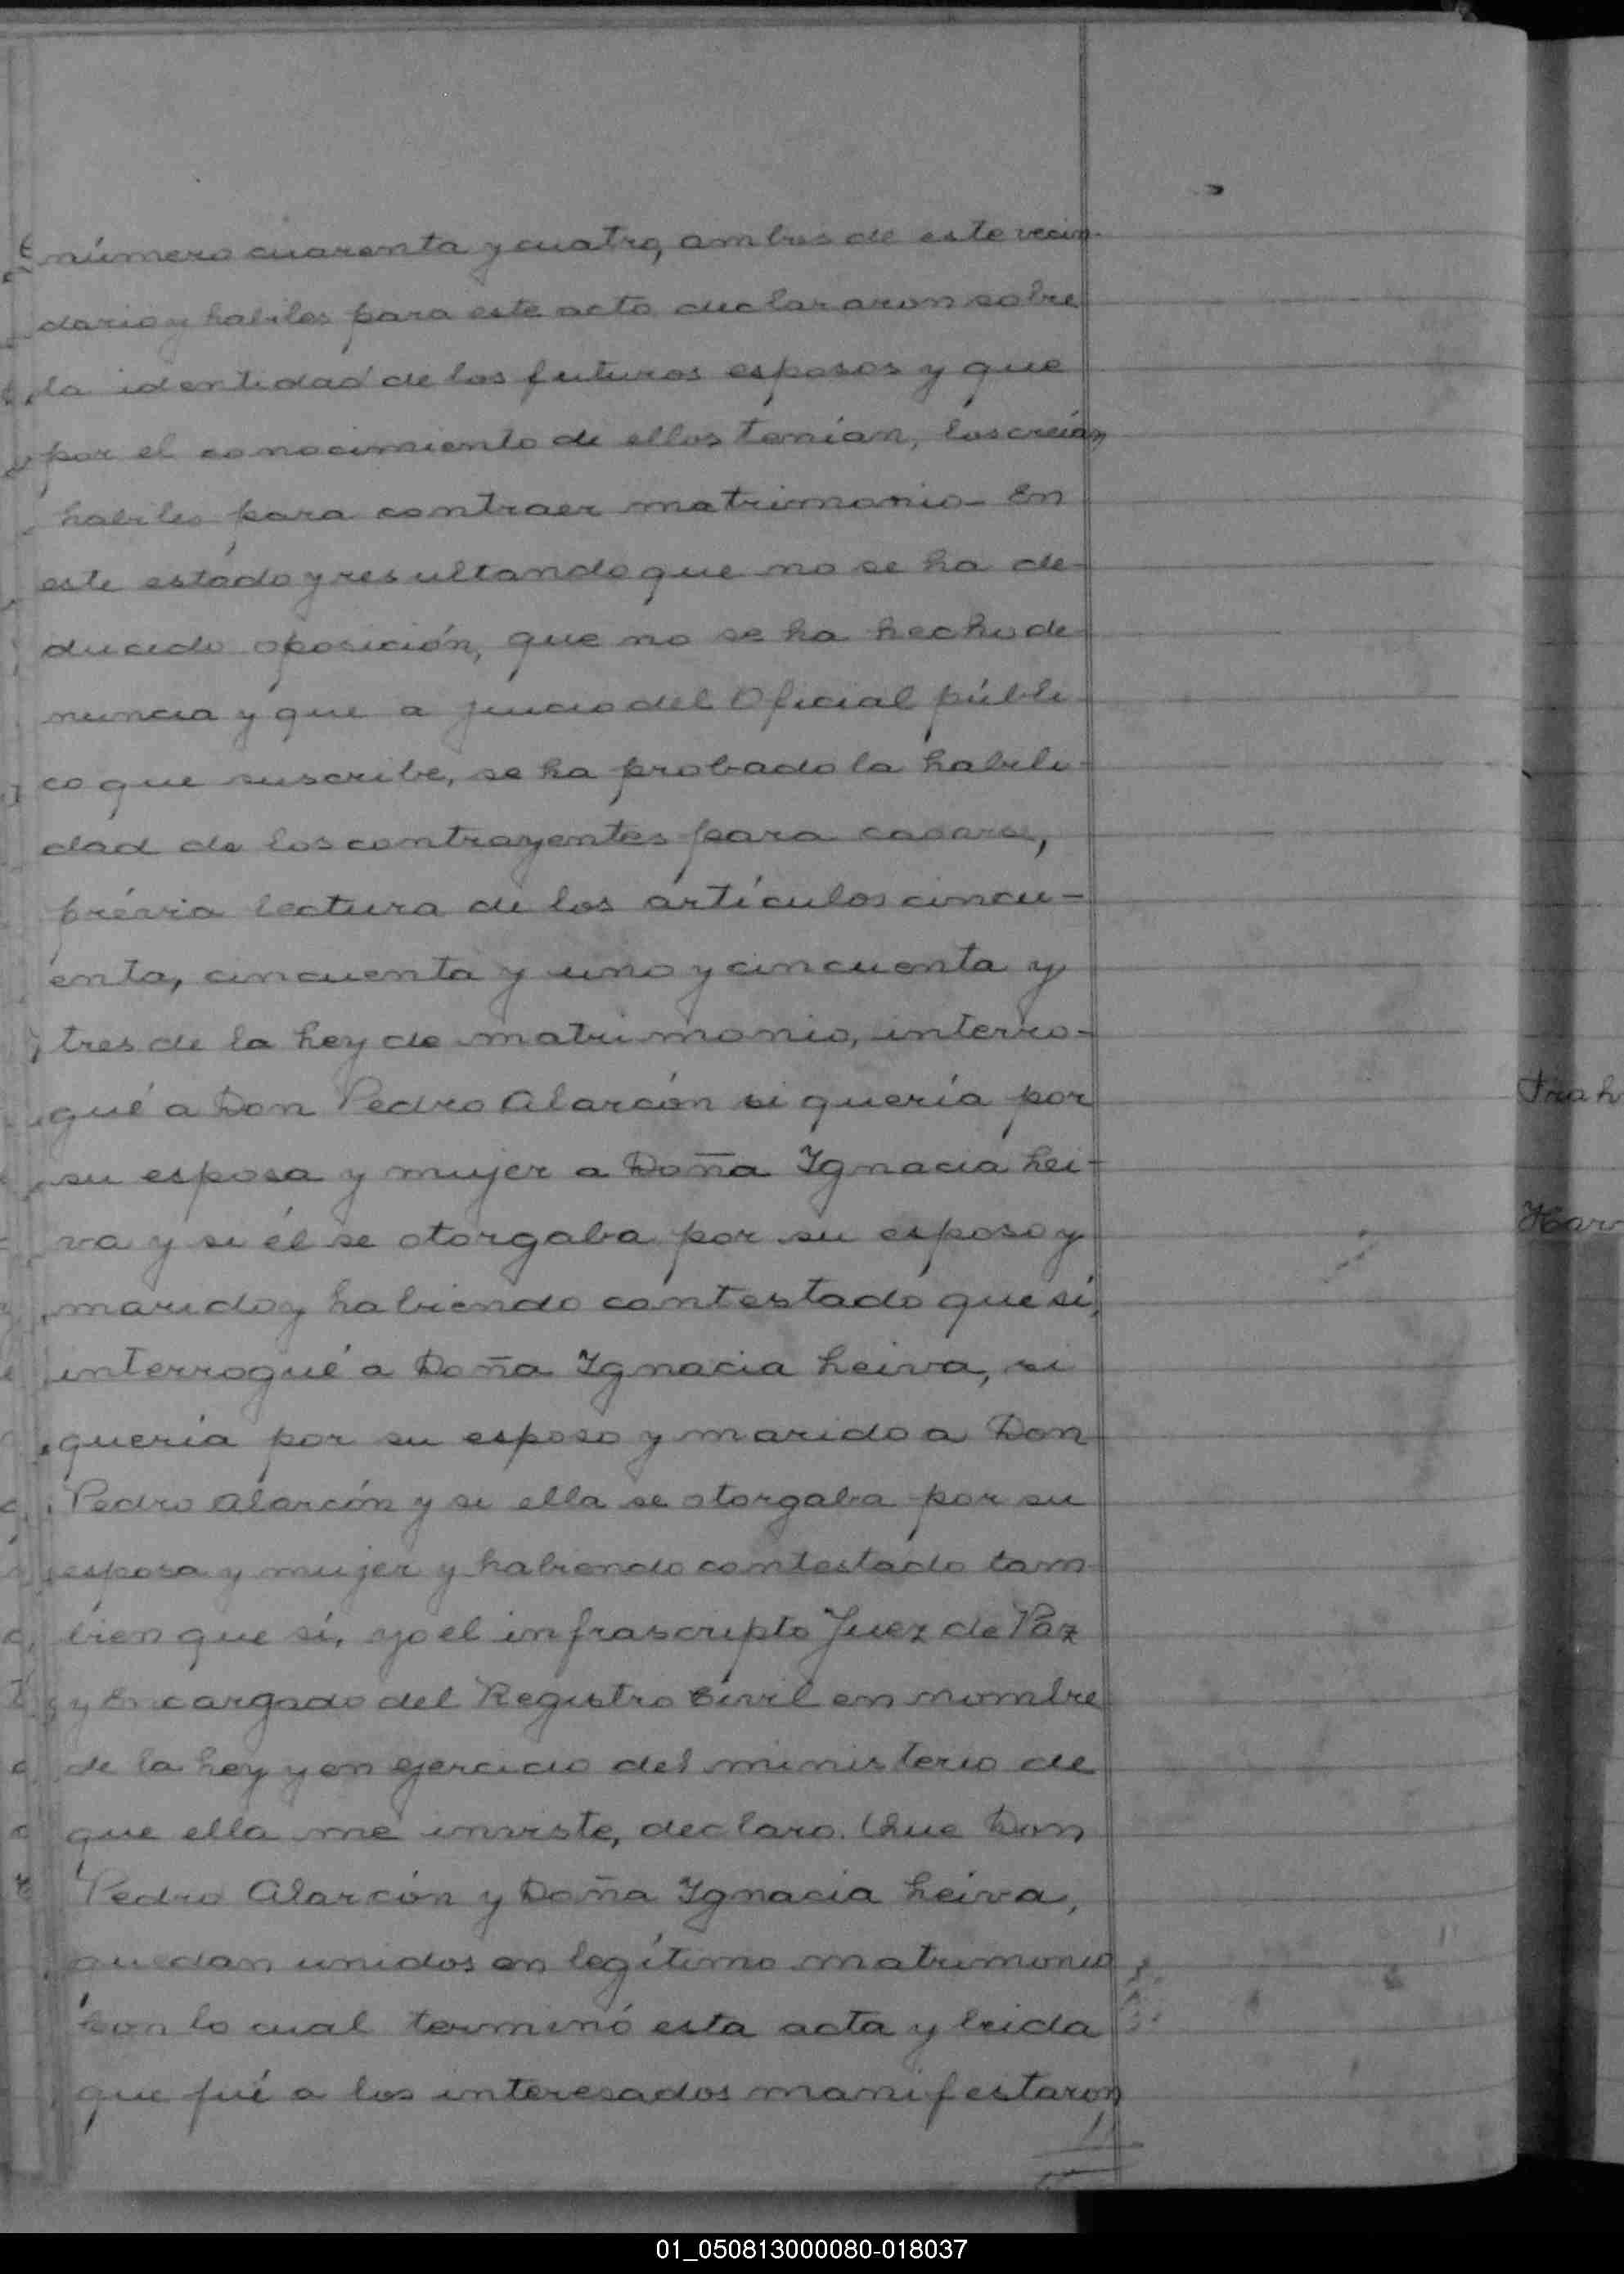 número cuarenta y cuatro, ambos de este vecin-
dario y habiles para este acto declararon sobre
la identidad de los futuros esposos y que
por el conocimiento de ellos tenían, los creían
habiles para contraer matrimonio - En
este estado y resultando que no se ha de-
ducido oposición, que no se ha hecho de-
nuncia y que a juicio del Oficial públi-
co que suscribe, se ha probado la habili-
dad de los contrayentes para casarse,
prévia lectura de los artículos cincu-
enta, cincuenta y uno y cincuenta y
tres de la Ley de matrimonio, interro-
gué a Don Pedro Alarcón si quería por
su esposa y mujer a Doña Ignacia Lei-
va y si él se otorgaba por su esposo y
marido y habiendo contestado que sí,
interrogué a Doña Ignacia Leiva, si
quería por su esposo y marido a Don
Pedro Alarcón y si ella se otorgaba por su
esposa y mujer y habiendo contestado tam-
bien que sí, yo el infrascripto Juez de Paz
y Encargado del Registro Civil en nombre
de la Ley y en ejercicio del ministerio de
que ella me inviste, declaro. Que Don
Pedro Alarcón y Doña Ignacia Leiva,
quedan unidos en legítimo matrimonio
Con lo cual terminó esta acta y leida
que fué a los interesados manifestaron
01_050813000080-018037